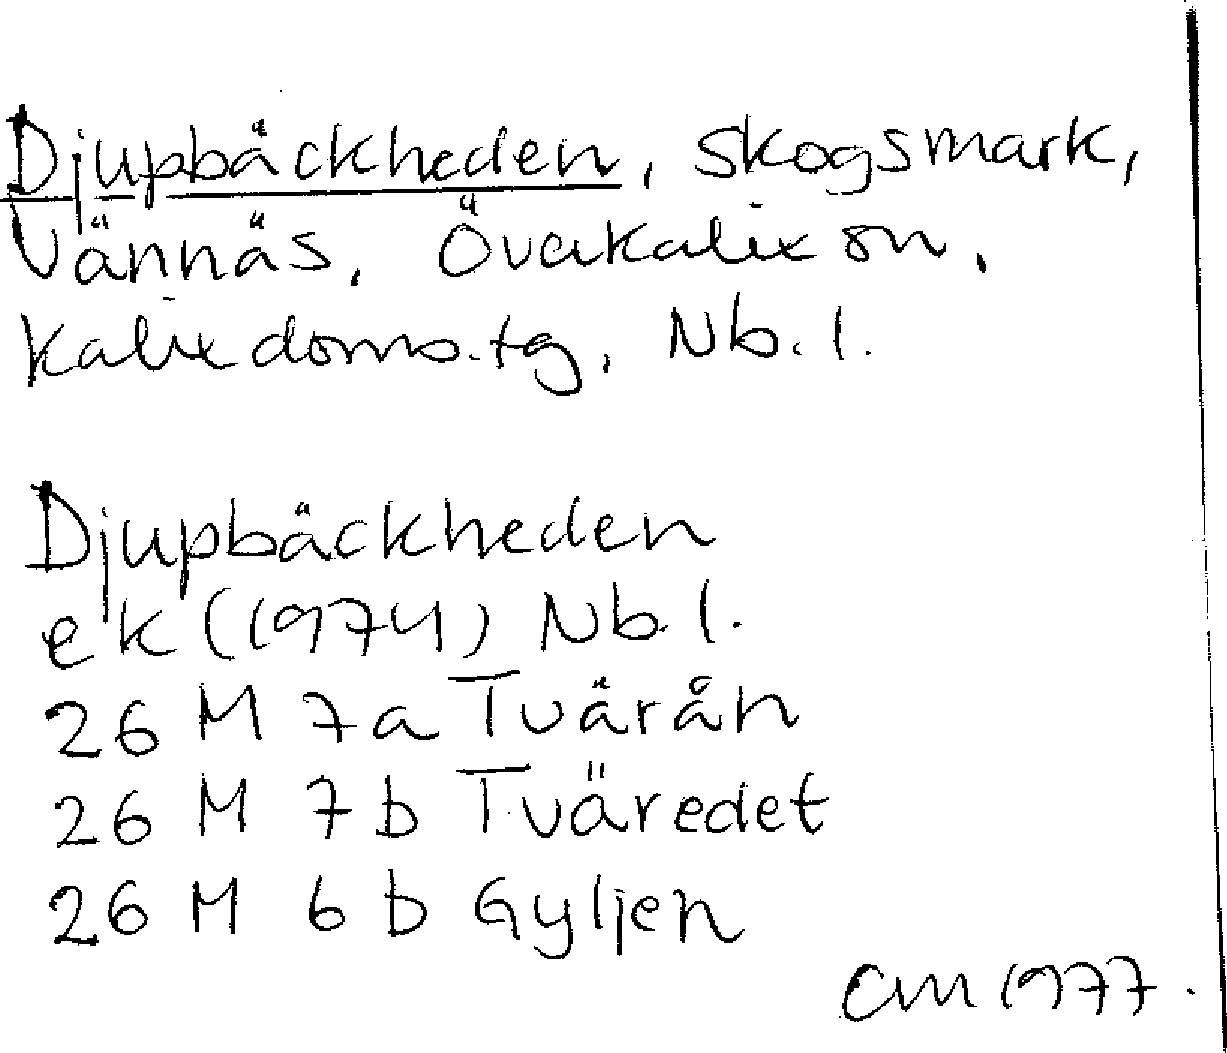 Djupbäckheden, skogsmark,
Vännäs, Överkalix sn,
Kalix doms.tg, Nb.l.
Djupbäckheden
ek (1974) Nb.l.
26 M 7a Tvärån
26 M 7b Tväredet
26 M 6b Gyljen
CM 1977.